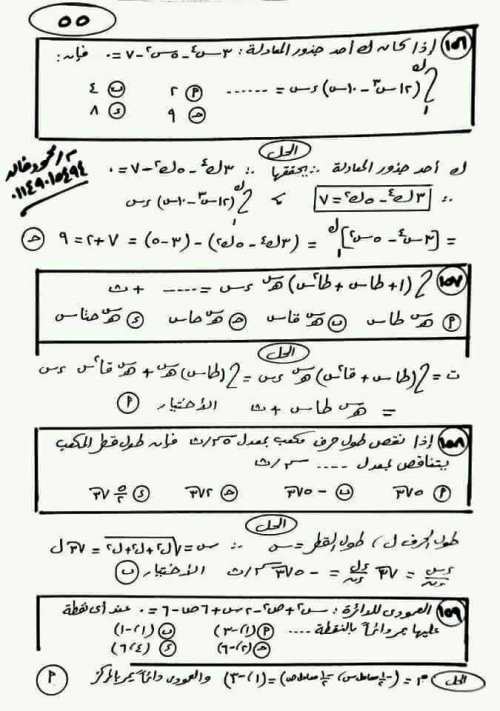 ٥٥
١٥٦ إذا كانه ك أحد جذور المعادلة : ٣س٤ - ٥س٢ - ٧ = ٠ فإنه :
∫١ك (١٢س٣ - ١٠س) ءس = ......
أ ٢ ب ٤
ح ٩ ء ٨
الحل
ك أحد جذور المعادلة ∴ يحققها ∴ ٣ك٤ - ٥ك٢ - ٧ = ٠
∴ ٣ك٤ - ٥ك٢ = ٧ ∫١ك (١٢س٣ - ١٠س) ءس
= [٣س٤ - ٥س٢]١ك = (٣ك٤ - ٥ك٢) - (٣ - ٥) = ٧ + ٢ = ٩ ح
م/ محمود خالد
٠١١٤٩٠١٥٤٩٤
١٥٧ ∫(١ + طاس + طا٢س) هـس ءس = ...... + ث
أ هـس طاس ب هـس قاس ح هـس جاس ء هـس جتاس
الحل
ت = ∫(طاس + قا٢س) هـس ءس = ∫(طاس) هـس + هـس قا٢س ءس
= هـس طاس + ث الأختيار أ
١٥٨ إذا نقص طول حرف مكعب بمعدل ٥سم/ث فإنه طول قطر المكعب
يتناقص بمعدل .... سم/ث
أ ٥√٣ ب -٥√٣ ح ٢√٣ ء ٥/٢ √٣
الحل
طول الحرف ل، طول القطر = س ∴ س = √(ل٢ + ل٢ + ل٢) = √٣ ل
ءس/ءن = √٣ ءل/ءن = -٥√٣ سم/ث الأختيار ب
١٥٩ العمودى للدائرة : س٢ + ص٢ - ٢س + ٦ص - ٦ = ٠ عند أى نقطة
عليها يمر دائماً بالنقطة .... أ (١، -٣) ب (١، -١)
ح (٢، -٦) ء (٤، ٦)
الحل م = (-١/٢ معامل س، -١/٢ معامل ص) = (١، -٣) والعمودى دائماً يمر بالمركز أ